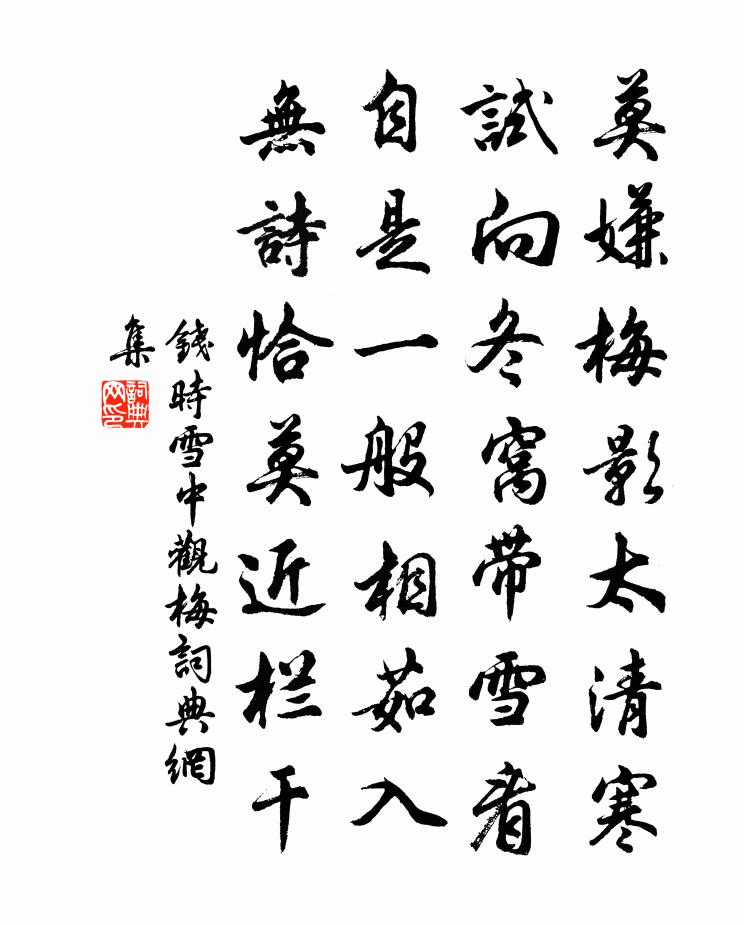 莫嫌梅影太清寒
試向冬窩带雪看
自是一般相茹入
無詩恰莫近栏干
錢時雪中觀梅詞典網
集
詞典
网印